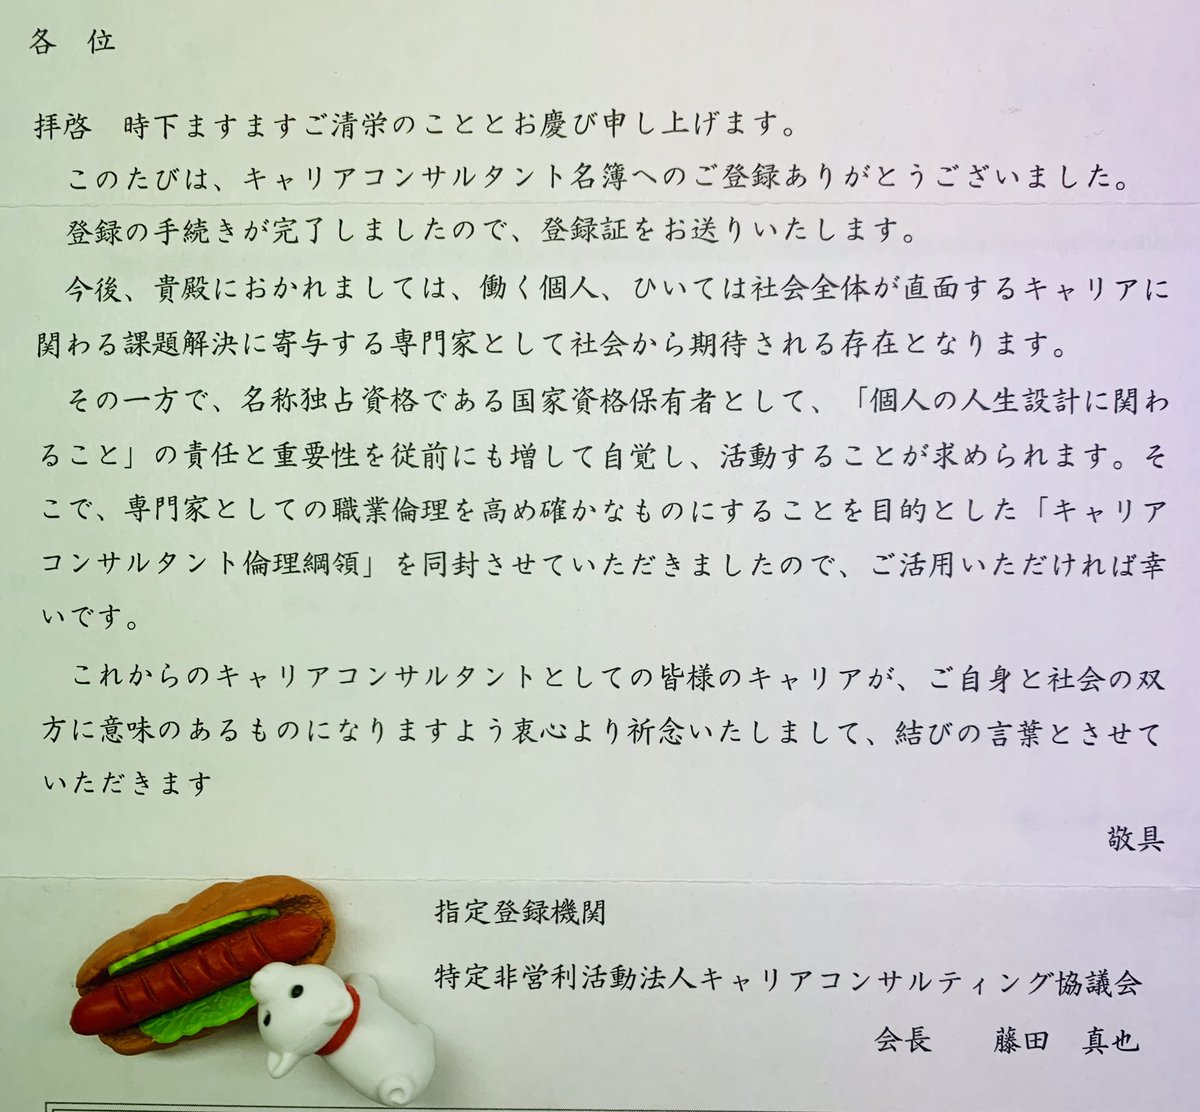 各　位
拝啓　時下ますますご清栄のこととお慶び申し上げます。
このたびは、キャリアコンサルタント名簿へのご登録ありがとうございました。
登録の手続きが完了しましたので、登録証をお送りいたします。
今後、貴殿におかれましては、働く個人、ひいては社会全体が直面するキャリアに
関わる課題解決に寄与する専門家として社会から期待される存在となります。
その一方で、名称独占資格である国家資格保有者として、「個人の人生設計に関わ
ること」の責任と重要性を従前にも増して自覚し、活動することが求められます。そ
こで、専門家としての職業倫理を高め確かなものにすることを目的とした「キャリア
コンサルタント倫理綱領」を同封させていただきましたので、ご活用いただければ幸
いです。
これからのキャリアコンサルタントとしての皆様のキャリアが、ご自身と社会の双
方に意味のあるものになりますよう衷心より祈念いたしまして、結びの言葉とさせて
いただきます
敬具
指定登録機関
特定非営利活動法人キャリアコンサルティング協議会
会長　　藤田　真也